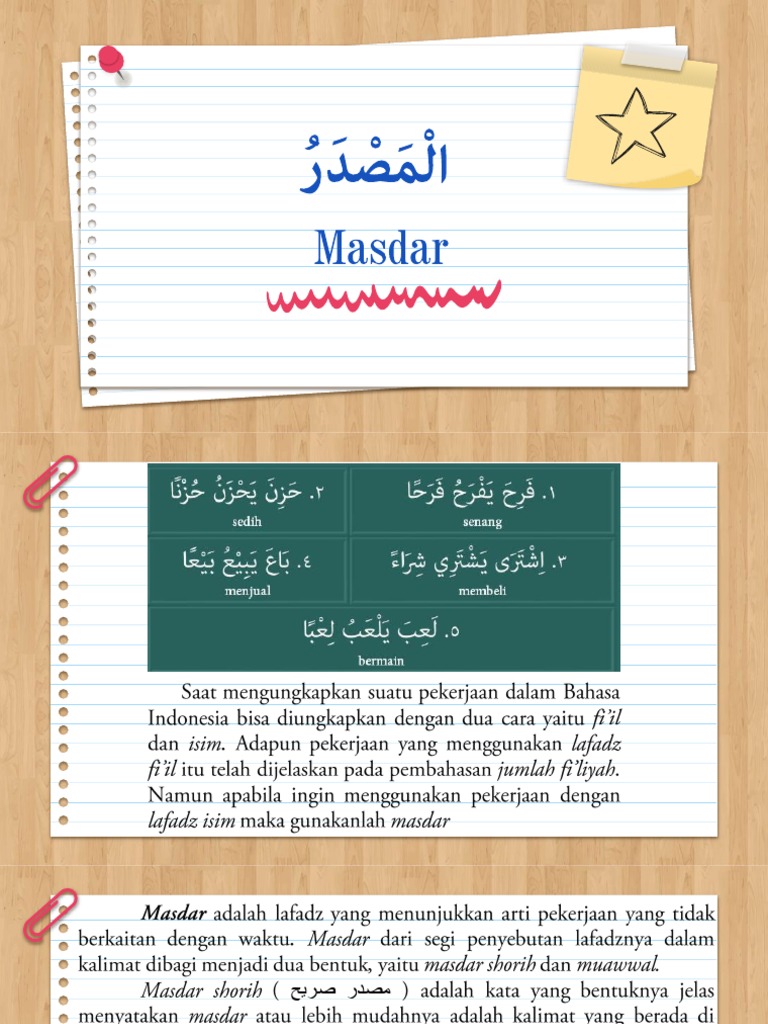 الْمَصْدَرُ
Masdar
١. فَرِحَ يَفْرَحُ فَرَحًا
senang
٢. حَزِنَ يَحْزَنُ حُزْنًا
sedih
٣. اِشْتَرَى يَشْتَرِي شِرَاءً
membeli
٤. بَاعَ يَبِيْعُ بَيْعًا
menjual
٥. لَعِبَ يَلْعَبُ لِعْبًا
bermain
Saat mengungkapkan suatu pekerjaan dalam Bahasa
Indonesia bisa diungkapkan dengan dua cara yaitu fi’il
dan isim. Adapun pekerjaan yang menggunakan lafadz
fi’il itu telah dijelaskan pada pembahasan jumlah fi’liyah.
Namun apabila ingin menggunakan pekerjaan dengan
lafadz isim maka gunakanlah masdar
Masdar adalah lafadz yang menunjukkan arti pekerjaan yang tidak
berkaitan dengan waktu. Masdar dari segi penyebutan lafadznya dalam
kalimat dibagi menjadi dua bentuk, yaitu masdar shorih dan muawwal.
Masdar shorih ( مصدر صريح ) adalah kata yang bentuknya jelas
menyatakan masdar atau lebih mudahnya adalah kalimat yang berada di